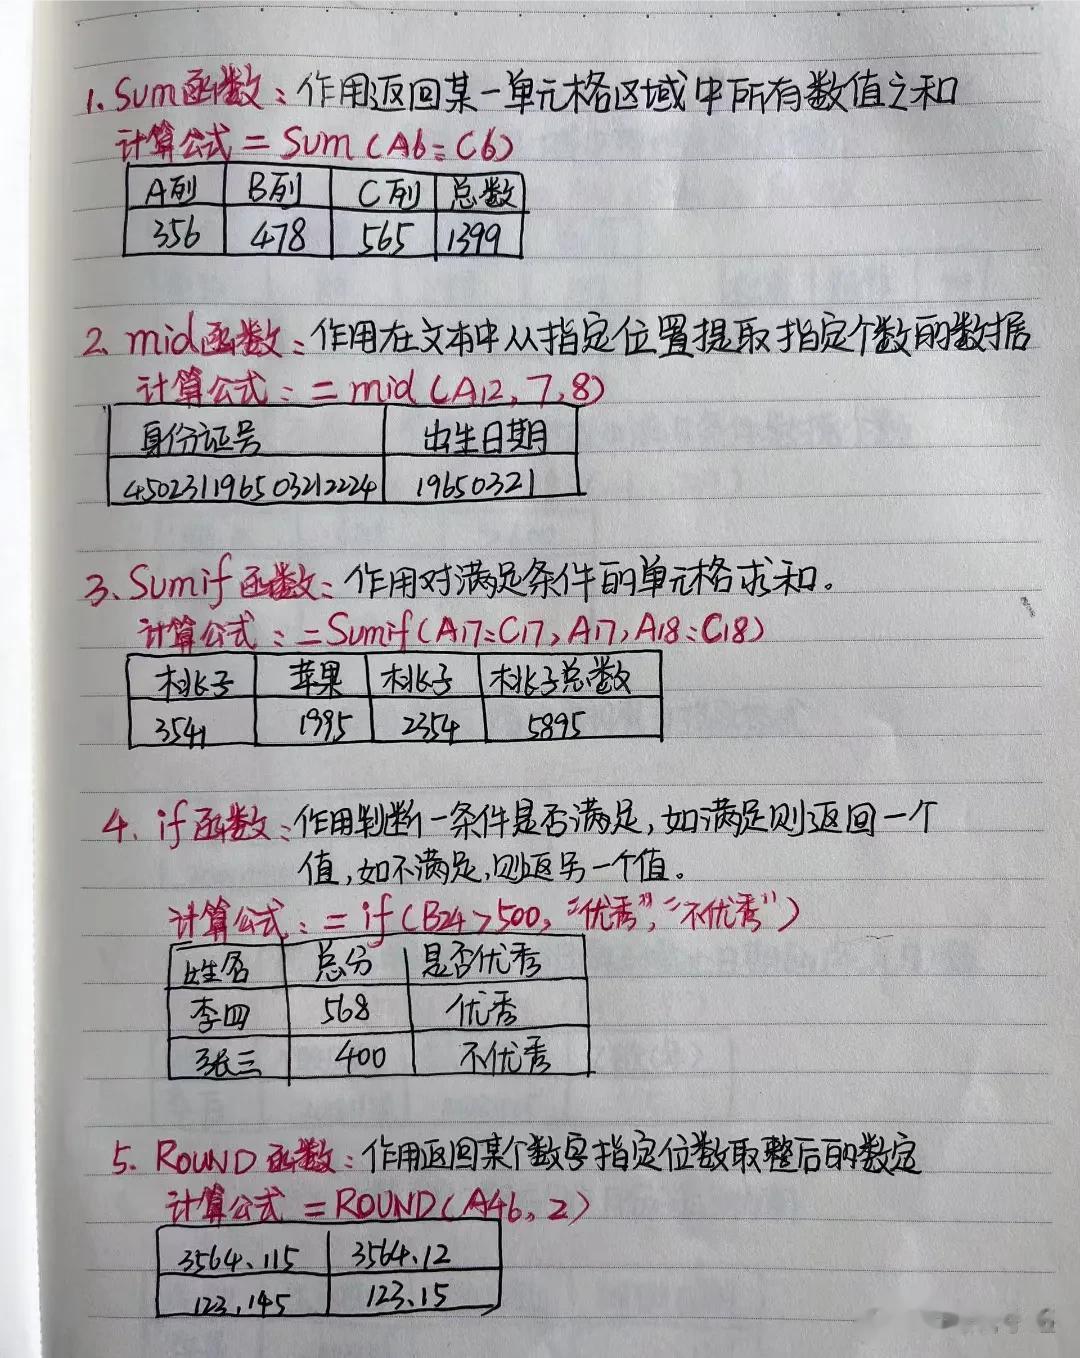 1. Sum函数：作用返回某一单元格区域中所有数值之和
计算公式 = Sum (A6:C6)
A列 B列 C列 总数
356 478 565 1399
2. mid函数：作用在文本中从指定位置提取指定个数的数据
计算公式：= mid (A12, 7, 8)
身份证号 出生日期
450231196503212224 19650321
3、Sumif函数：作用对满足条件的单元格求和。
计算公式：= Sumif (A17:C17, A17, A18:C18)
桃子 苹果 桃子 桃子总数
3541 1995 2354 5895
4. if函数：作用判断一条件是否满足，如满足则返回一个
值，如不满足，则返另一个值。
计算公式：= if (B24>500, "优秀", "不优秀")
姓名 总分 是否优秀
李四 568 优秀
张三 400 不优秀
5. ROUND函数：作用返回某个数字指定位数取整后的数定
计算公式 = ROUND (A46, 2)
3564.115 3564.12
123.145 123.15